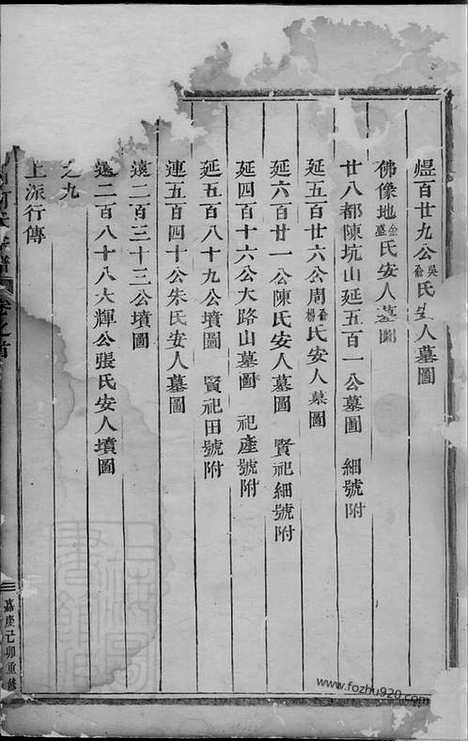 煜百廿九公吳俞氏安人墓圖
佛像地金氏安人墓圖
廿八都陳坑山延五百一公墓圖 細號附
延五百廿六公周俞楊氏安人墓圖
延六百廿一公陳氏安人墓圖 賢祀細號附
延四百十六公大路山墓圖 祀產號附
延五百八十九公墳圖 賢祀田號附
連五百四十公朱氏安人墓圖
遠二百三十三公墳圖
遠二百八十八大輝公張氏安人墳圖
之九
上派行傳
卷之首
嘉慶己卯重修
www.fozhu920.com